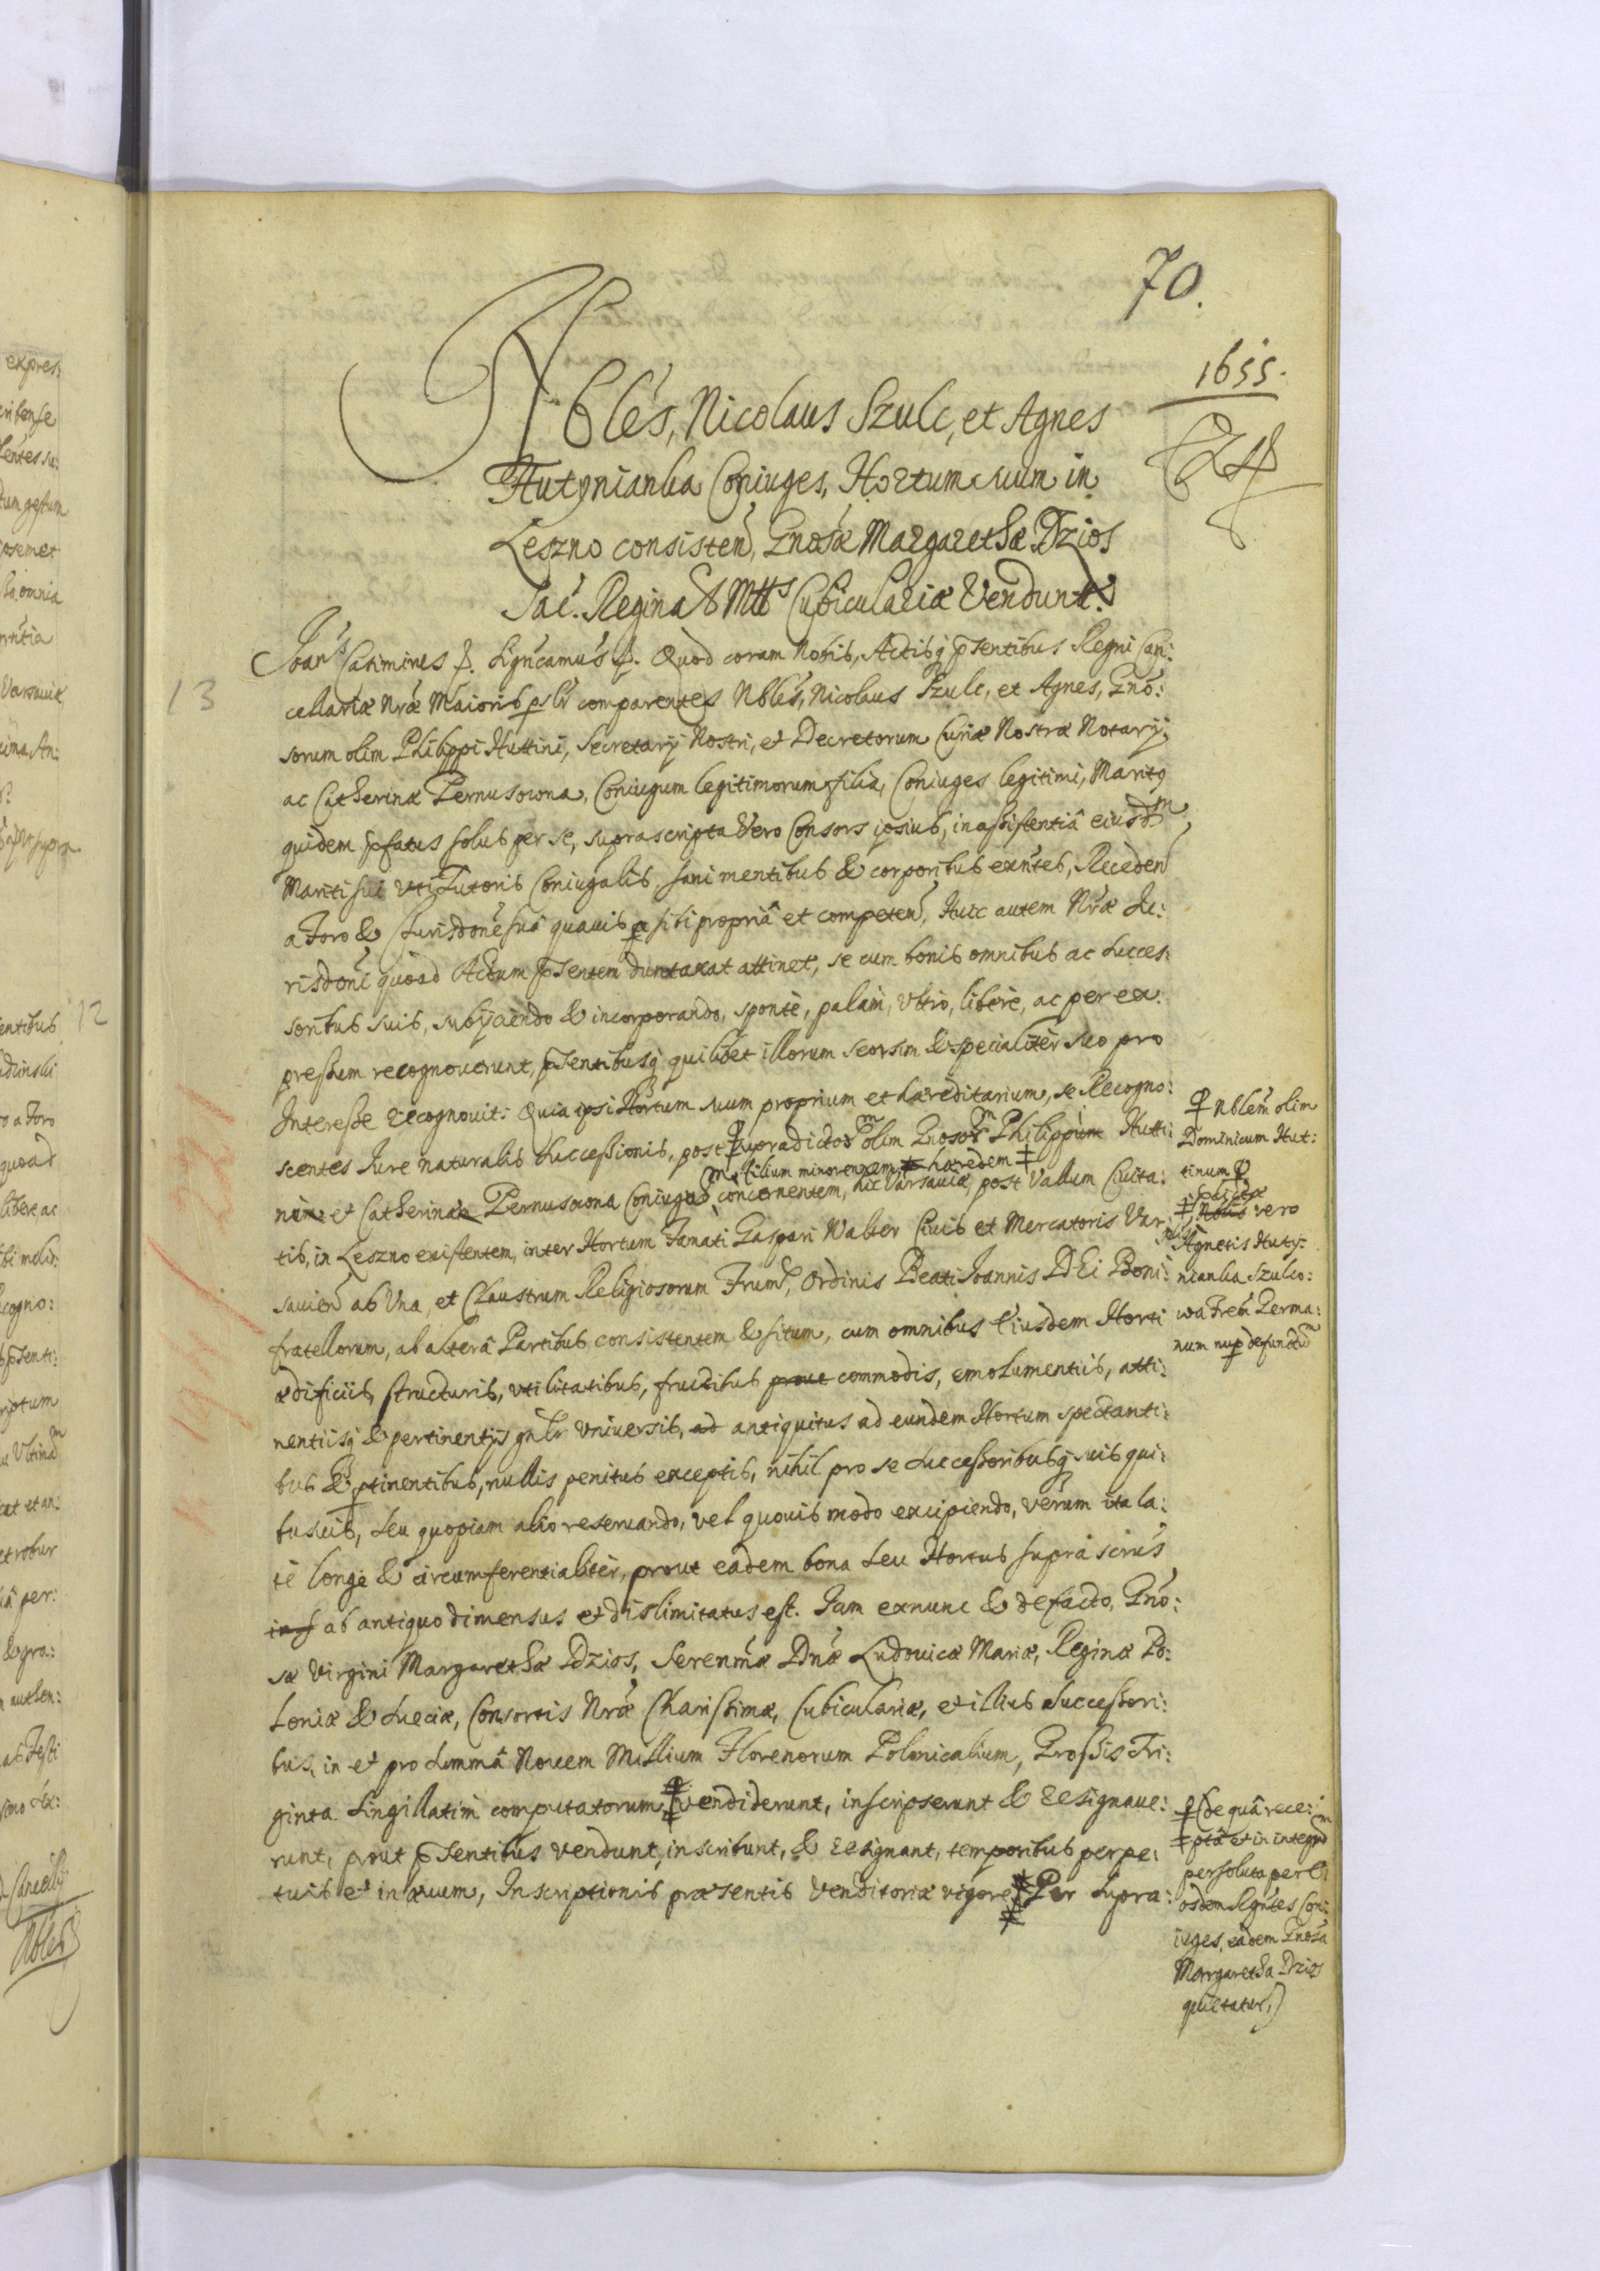 70.
1655.
Nblés, Nicolaus Szulc, et Agnes
Hutynianka Coniuges, Hortum suum in
Leszno consisteñ, Gnosæ Margarethæ Dzios
Sac. Reginał Mttis Cubiculariæ Vendunt.
13
Joans Casimirus Signcamus Quod coram Nobis, Actisq pñsentibus Regni Can:
cellariæ Nræ Maioris pslr comparentes Nblés, Nicolaus Szulc, et Agnes, Gnó:
sorum olim Philippi Huttini, Secretarij Nostri, et Decretorum Curiæ Nostræ Notarij,
ac Catherinæ Pernusowna, Coniugum legitimorum filia, Coniuges legitimi, Maritq
quidem pfatus solus per se, suprascripta Vero Consors ipsius, in assistentiâ eiusdm
Mariti sui vti Tutoris Coniugalis, sani mentibus & corporibus exntes, Recedeñ
a Foro & Jurisdone suâ quauis sibi propriâ et competeñ, Huic autem Nræ Ju:
risdoni quoad Actum pñsentem duntaxat attinet, se cum bonis omnibus ac Succes:
soribus suis, subijciendo & incorporando, sponte, palam, vltro, libere, ac per ex:
pressum recognouerunt, pñsentibusq quilibet illorum seorsim & specialiter suo pro
Interesse recognouit: Quia ipsi Hortum suum proprium et hæreditarium, se Recogno:
scentes Jure naturalis Successionis, post supradictorm olim Gnosorm Philippum Hutti:
filium minorennem hæredem
num et Catherinam Pernusowna Coniuges concernentem, hic Varsauiæ, post Vallum Ciuita:
tis, in Leszno existentem, inter Hortum Famati Gaspari Walter Ciuis et Mercatoris Var
sauieñ ab Vna, et Claustrum Religiosorum Frum, Ordinis Beati Joannis DEi Boni:
fratellorum, ab alterâ Partibus consistentem & situm, cum omnibus Eiusdem Horti
ædificijs, structuris, vtilitatibus, fructibus prout commodis, emolumentis, atti:
nentiisq & pertinentijs gnlr Vniuersis, ad antiquitus ad eundem Hortum spectanti:
bus & ptinentibus, nullis penitus exceptis, nihil pro se Successoribusq suis qui:
busuis, seu quopiam alio reseruando, vel quouis modo excipiendo, verum ita la:
te longe & circumferentialiter, prout eadem bona seu Hortus supra scrius
ab antiquo dimensus et dislimitatus est. Jam exnunc & defacto, Gnó:
sæ Virgini Margarethæ Dzios, Serenmæ Dnæ Ludouicæ Mariæ, Reginæ Po:
loniæ & Sueciæ, Consortis Nræ Charissimæ, Cubiculariæ, et illius Successori:
bus, in et pro Summâ Nouem Millium Florenorum Polonicalium, Grossis Tri:
ginta Singillatim computatorum, vendiderunt, inscripserunt & resignaue:
runt, prout pñsentibus vendunt, inscribunt, & resignant, temporibus perpe:
tuis et in æuum, Inscriptionis præsentis Venditoriæ vigore Per supra:
Nblem olim
Dominicum Hut:
tinum
Nobis vero
Agnetis Huty:
nianka Szulco:
wa Frem Germa:
num nup defunctum
(de quâ rece:
ptâ et in integrum
persoluta per E
osdem Rgntes Con:
iuges, eadem Gnosa
Margaretha Dzios
quietatur,)
expres:
omnia
Varsauiæ
12
quoad
libere ac
cogno:
per:
authen:
Nbles